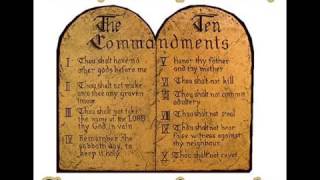 The Ten
Commandments
I Thou shalt have no
other gods before me
II Thou shalt not make
unto thee any graven
image
III Thou shalt not take
the name of the LORD
thy God in vain
IV Remember the
sabbath day, to
keep it holy
V Honor thy father
and thy mother
VI Thou shalt not kill
VII Thou shalt not commit
adultery
VIII Thou shalt not steal
IX Thou shalt not bear
false witness against
thy neighbour
X Thou shalt not covet